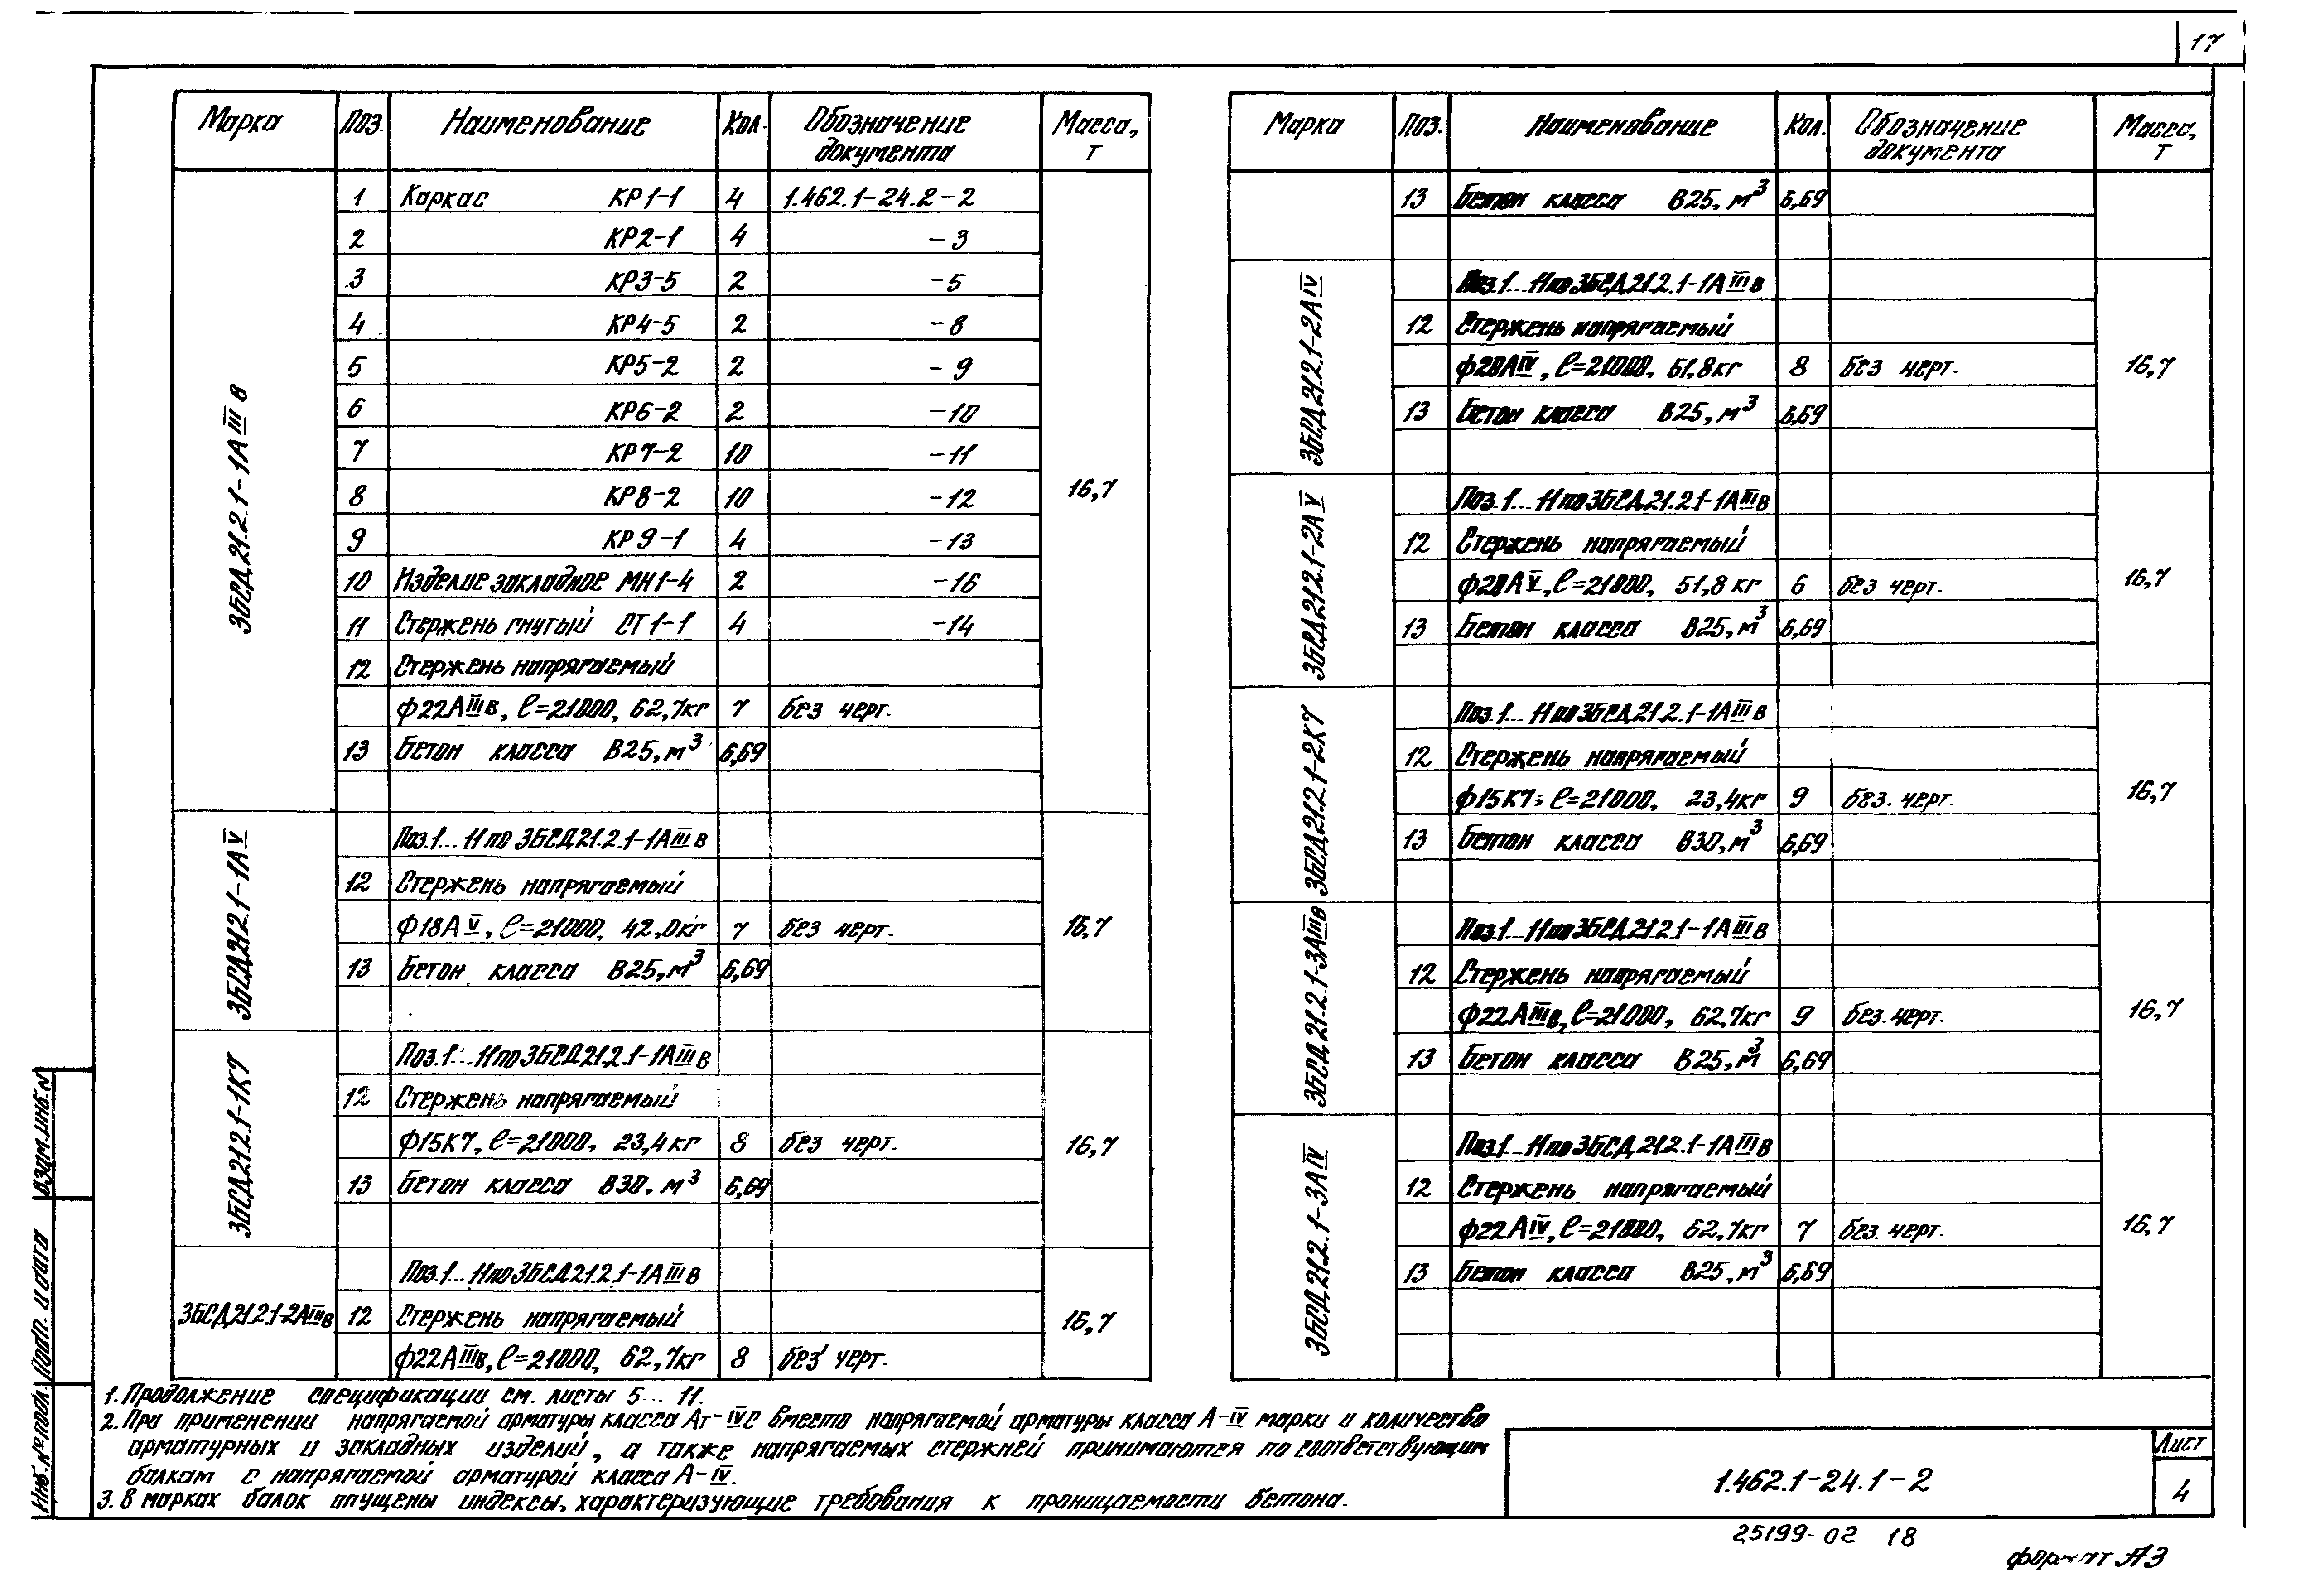 17
Марка Поз. Наименование Кол. Обозначение документа Масса, т
3БСД21.2.1-1АIIIв
1 Каркас КР1-1 4 1.462.1-24.2-2
2 КР2-1 4 -3
3 КР3-5 2 -5
4 КР4-5 2 -8
5 КР5-2 2 -9
6 КР6-2 2 -10
7 КР7-2 10 -11
8 КР8-2 10 -12
9 КР9-1 4 -13
10 Изделие закладное МН1-4 2 -16
11 Стержень гнутый СТ1-1 4 -14
12 Стержень напрягаемый
ф22АIIIв, ℓ=21000, 62,7кг 7 без черт.
13 Бетон класса В25, м³ 6,69
16,7
3БСД21.2.1-1АV
Поз.1...11 по 3БСД21.2.1-1АIIIв
12 Стержень напрягаемый
ф18АV, ℓ=21000, 42,0кг 7 без черт.
13 Бетон класса В25, м³ 6,69
16,7
3БСД21.2.1-1К7
Поз.1...11 по 3БСД21.2.1-1АIIIв
12 Стержень напрягаемый
ф15К7, ℓ=21000, 23,4кг 8 без черт.
13 Бетон класса В30, м³ 6,69
16,7
Поз.1...11 по 3БСД21.2.1-1АIIIв
3БСД21.2.1-2АIIIв 12 Стержень напрягаемый
ф22АIIIв, ℓ=21000, 62,7кг 8 без черт.
16,7
Марка Поз. Наименование Кол. Обозначение документа Масса, т
13 Бетон класса В25, м³ 6,69
3БСД21.2.1-2АIV
Поз.1...11 по 3БСД21.2.1-1АIIIв
12 Стержень напрягаемый
ф20АIV, ℓ=21000, 51,8кг 8 без черт.
13 Бетон класса В25, м³ 6,69
16,7
3БСД21.2.1-2АV
Поз.1...11 по 3БСД21.2.1-1АIIIв
12 Стержень напрягаемый
ф20АV, ℓ=21000, 51,8кг 6 без черт.
13 Бетон класса В25, м³ 6,69
16,7
3БСД21.2.1-2К7
Поз.1...11 по 3БСД21.2.1-1АIIIв
12 Стержень напрягаемый
ф15К7, ℓ=21000, 23,4кг 9 без. черт.
13 Бетон класса В30, м³ 6,69
16,7
3БСД21.2.1-3АIIIв
Поз.1...11 по 3БСД21.2.1-1АIIIв
12 Стержень напрягаемый
ф22АIIIв, ℓ=21000, 62,7кг 9 без. черт.
13 Бетон класса В25, м³ 6,69
16,7
3БСД21.2.1-3АIV
Поз.1...11 по 3БСД21.2.1-1АIIIв
12 Стержень напрягаемый
ф22АIV, ℓ=21000, 62,7кг 7 без. черт.
13 Бетон класса В25, м³ 6,69
16,7
1. Продолжение спецификации см. листы 5... 11.
2. При применении напрягаемой арматуры класса Ат-IVС вместо напрягаемой арматуры класса А-IV марки и количество
арматурных и закладных изделий, а также напрягаемых стержней принимаются по соответствующим
балкам с напрягаемой арматурой класса А-IV.
3. В марках балок опущены индексы, характеризующие требования к проницаемости бетона.
Инв.№подл. Подп. и дата Взам.инв.№
1.462.1-24.1-2
Лист
4
25199-02 18
формат А3